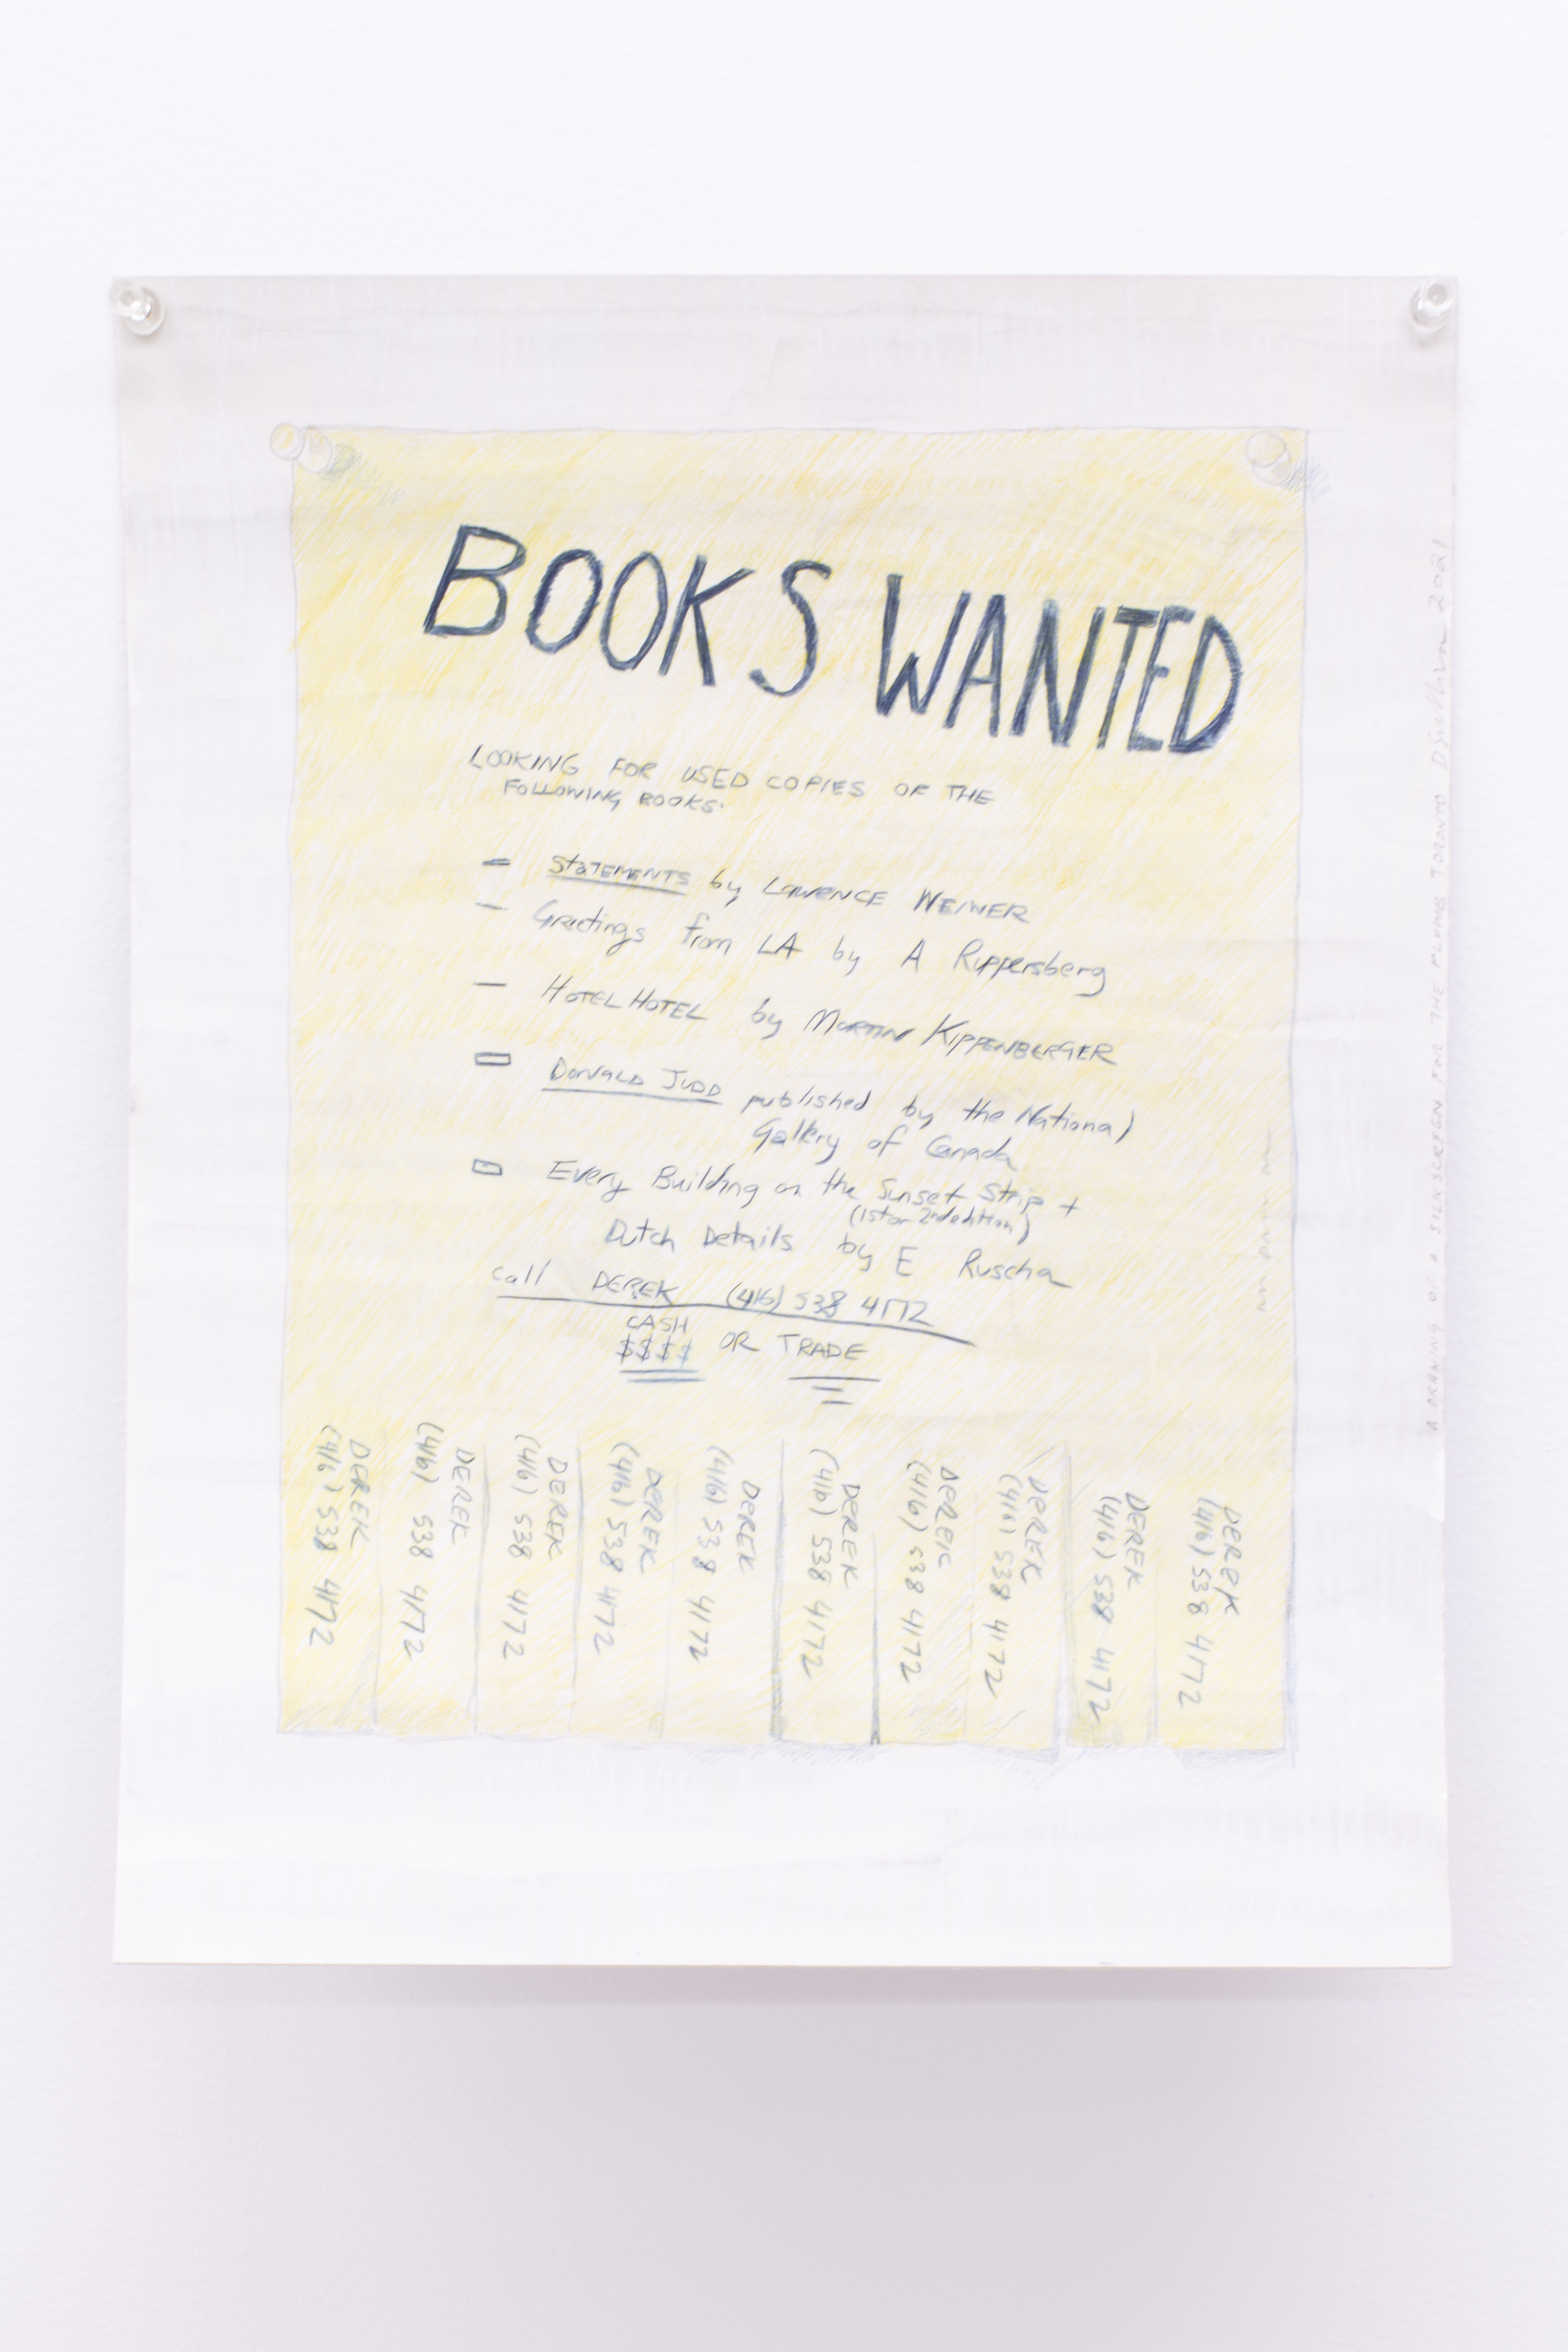 BOOKS WANTED
LOOKING FOR USED COPIES OF THE
FOLLOWING BOOKS.
- STATEMENTS by LAWRENCE WEINER
- Greetings from LA by A Ruppersberg
- HOTEL HOTEL by MARTIN KIPPENBERGER
- DONALD JUDD published by the National
Gallery of Canada
- Every Building on the Sunset Strip +
(1st or 2nd edition)
Dutch Details by E Ruscha
Call DEREK (416) 538 4172
CASH
$$$$ OR TRADE
DEREK
(416) 538 4172
DEREK
(416) 538 4172
DEREK
(416) 538 4172
DEREK
(416) 538 4172
DEREK
(416) 538 4172
DEREK
(416) 538 4172
DEREK
(416) 538 4172
DEREK
(416) 538 4172
DEREK
(416) 538 4172
DEREK
(416) 538 4172
A DRAWING OF A SILKSCREEN FOR THE PLUMB TORONTO 2021